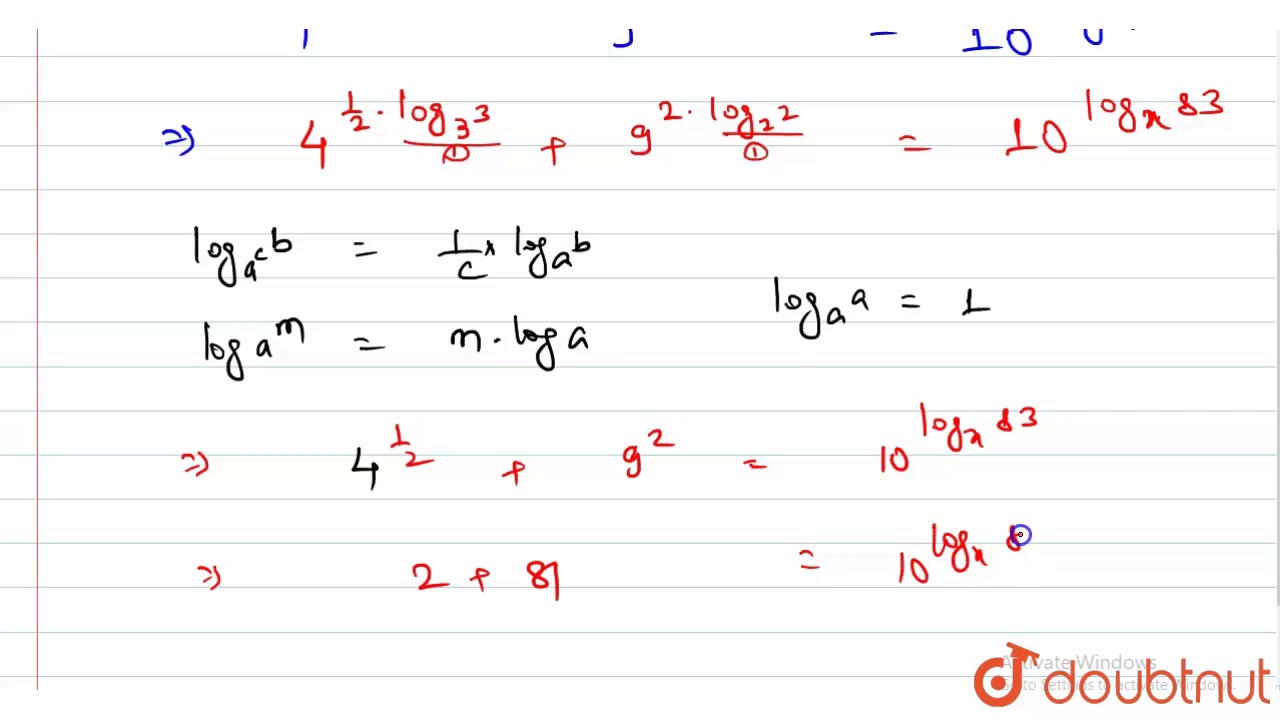 = 10
⇒ 4^(1/2 · log_3 3) (1) + 9^(2 · log_2 2) (1) = 10^(log_x 83)
log_a^c b = 1/c × log_a b
log_a a = 1
log a^m = m · log a
⇒ 4^(1/2) + 9^2 = 10^(log_x 83)
⇒ 2 + 81 = 10^(log_x 8
Activate Windows
Go to Settings to activate Windows.
doubtnut